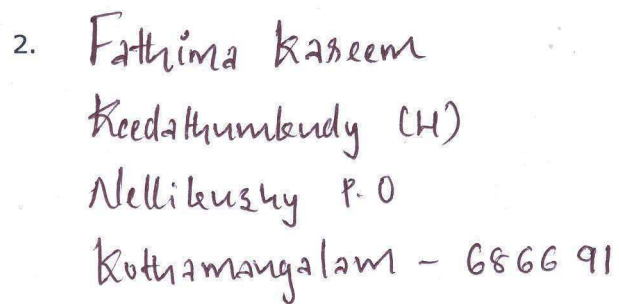 2. Fathima Kaseem
Keedathumkudy (H)
Nellikuzhy P.O
Kothamangalam - 686691